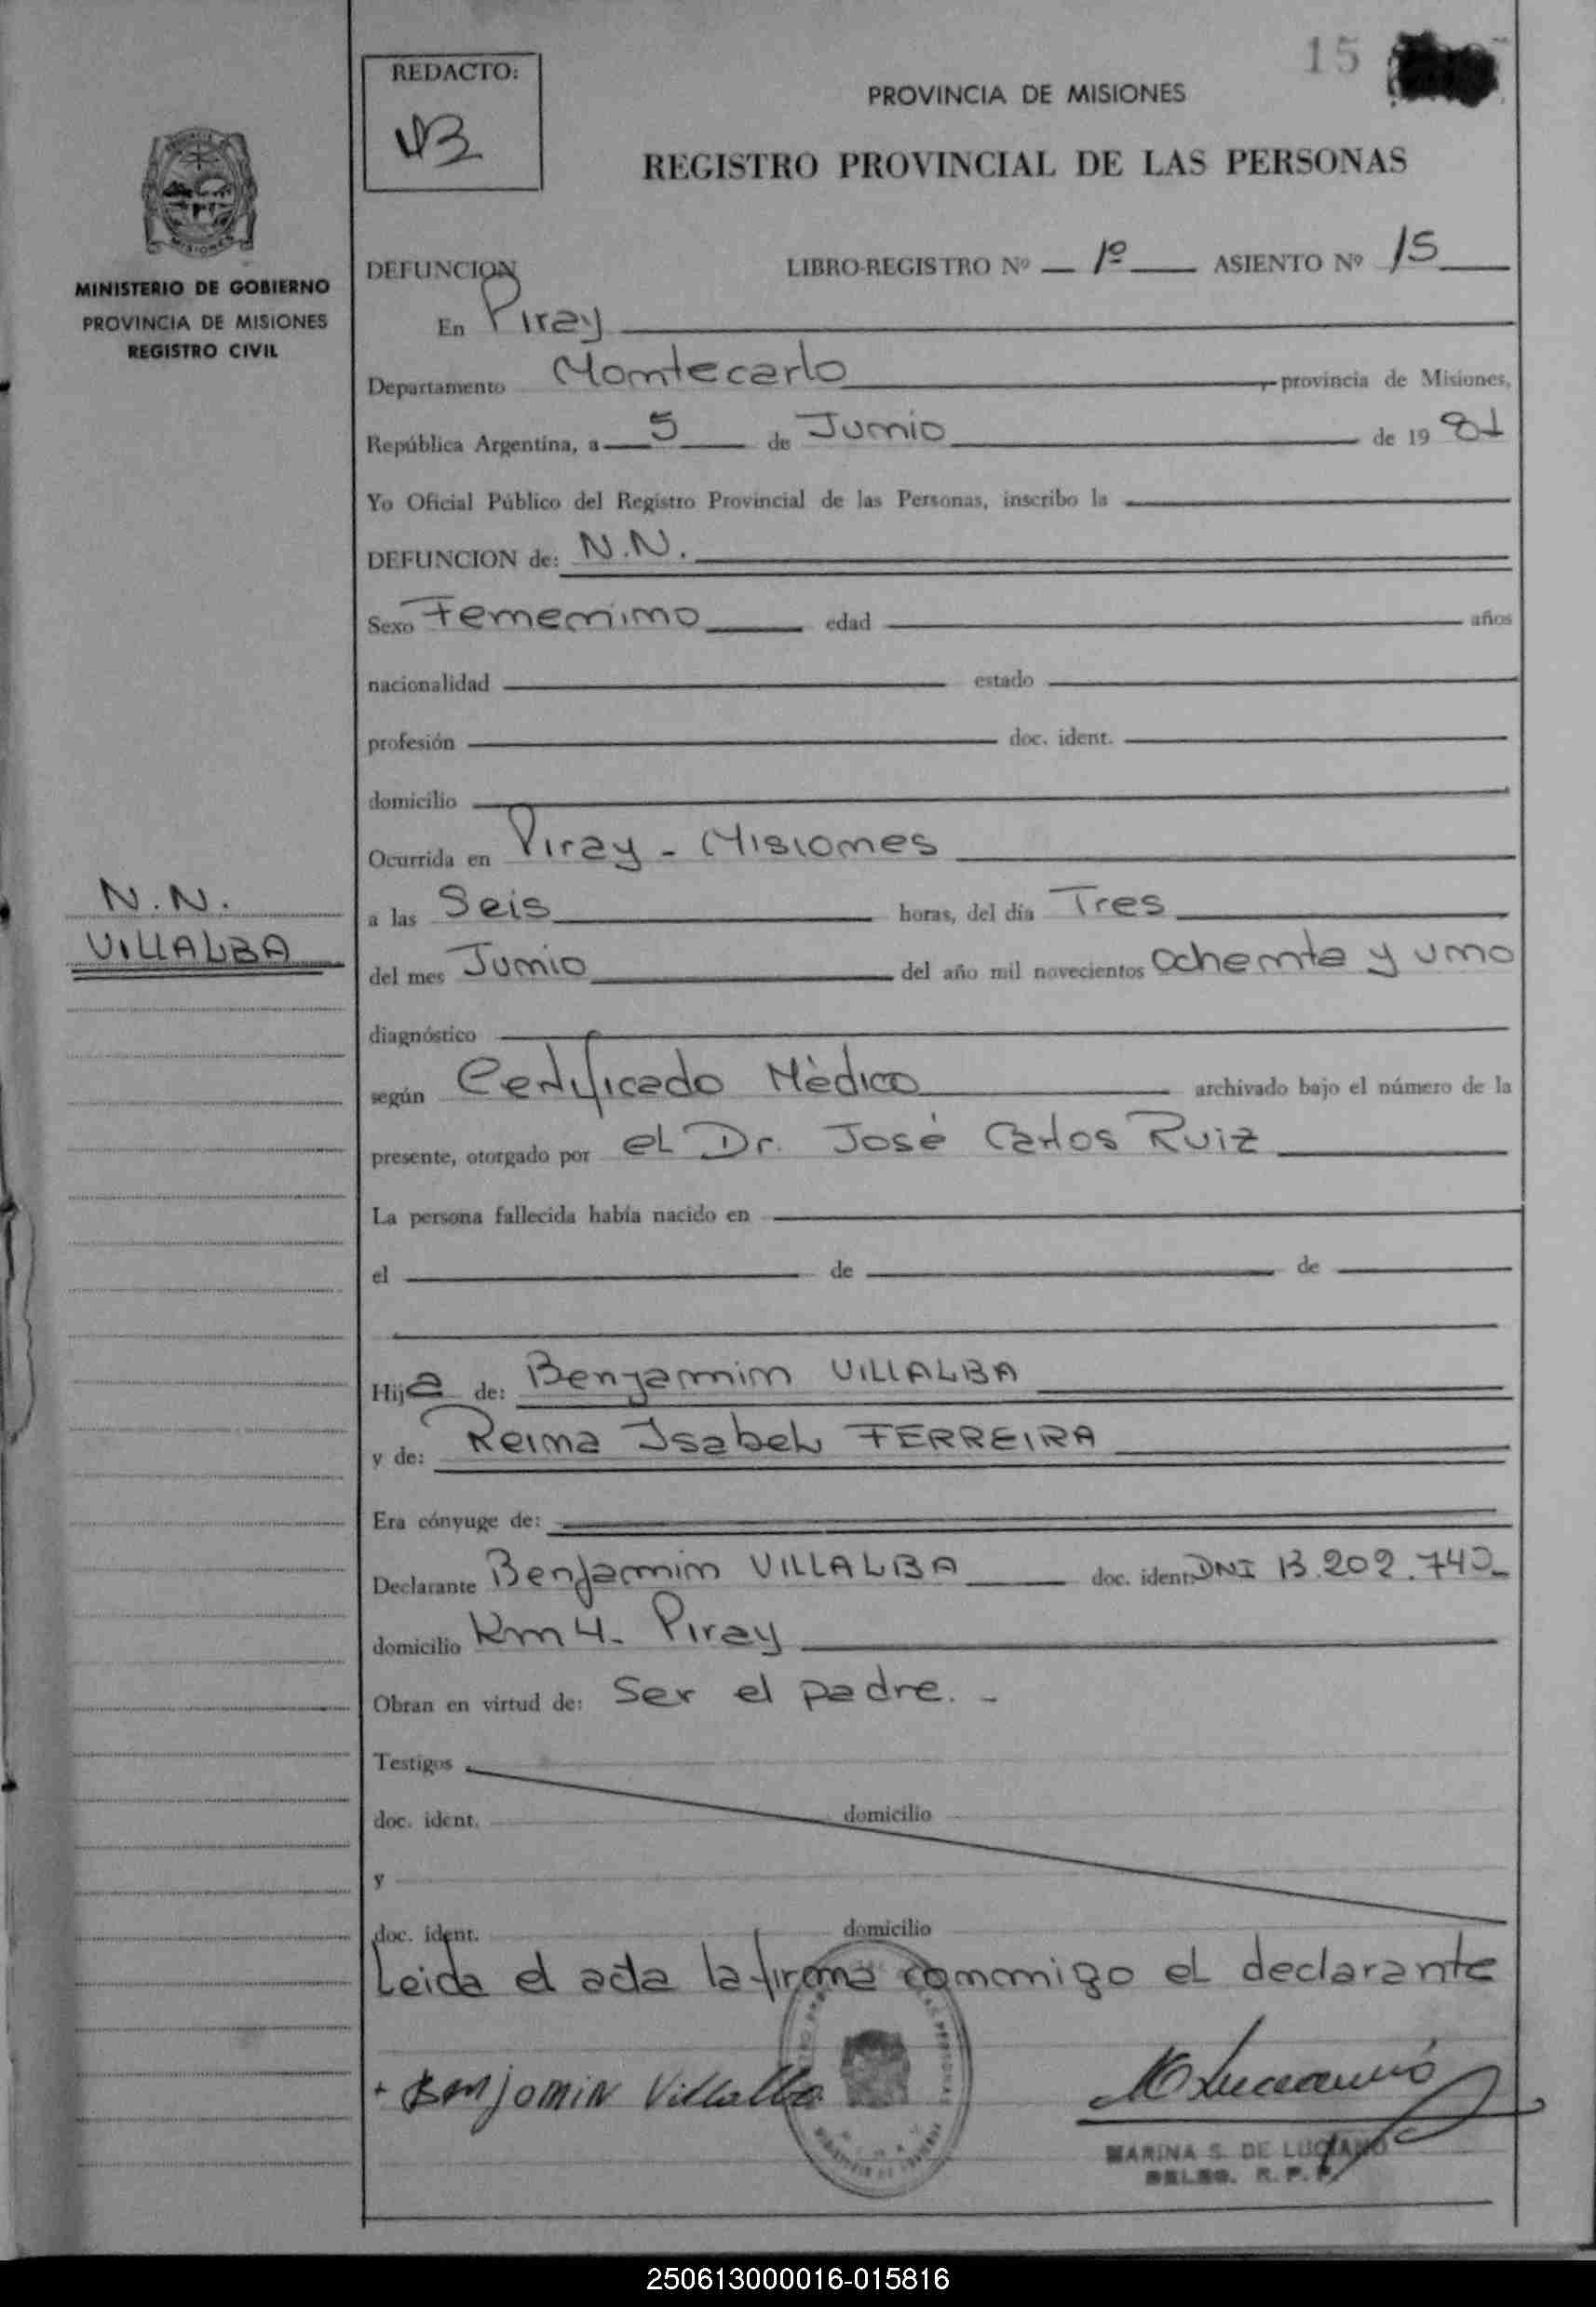 15
REDACTO:
VB
PROVINCIA DE MISIONES
REGISTRO PROVINCIAL DE LAS PERSONAS
MISIONES
MINISTERIO DE GOBIERNO
PROVINCIA DE MISIONES
REGISTRO CIVIL
DEFUNCION LIBRO-REGISTRO Nº 1º ASIENTO Nº 15
En Piray
Departamento Montecarlo, provincia de Misiones,
República Argentina, a 5 de Junio de 1981
Yo Oficial Público del Registro Provincial de las Personas, inscribo la
DEFUNCION de: N.N.
Sexo Femenino edad años
nacionalidad estado
profesión doc. ident.
domicilio
Ocurrida en Piray - Misiones
N.N.
VILLALBA
a las Seis horas, del día Tres
del mes Junio del año mil novecientos ochenta y uno
diagnóstico
según Certificado Mèdico archivado bajo el número de la
presente, otorgado por el Dr. José Carlos Ruiz
La persona fallecida había nacido en
el de de
Hija de: Benjamin VILLALBA
y de: Reina Isabel FERREIRA
Era cónyuge de:
Declarante Benjamin VILLALBA doc. ident. DNI 13.202.742
domicilio Km 4 - Piray
Obran en virtud de: Ser el padre. -
Testigos
doc. ident. domicilio
y
doc. ident. domicilio
Leida el acta la firma conmigo el declarante
+ Benjamin Villalba
MARINA S. DE LUCIANO
DELEG. R. P. P.
250613000016-015816